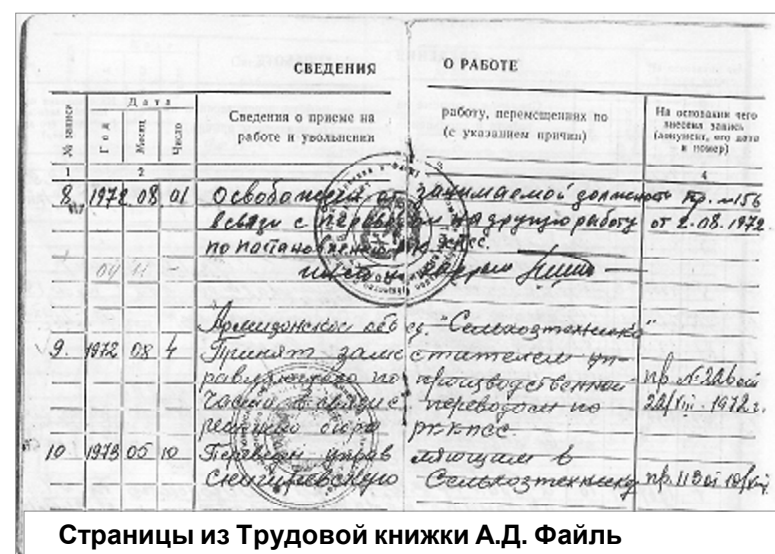 СВЕДЕНИЯ О РАБОТЕ
№ записи
Дата
Год
Месяц
Число
Сведения о приеме на работу, перемещениях по
работе и увольнении (с указанием причин)
На основании чего
внесена запись
(документ, его дата
и номер)
1 2 4
8 1972 08 01 Освобожден от занимаемой должности пр. №156
в связи с переводом на другую работу от 2.08.1972
по постановлению КПСС.
"Сельхозтехника"
9. 1972 08 4 Принят заместителем уп-
равляющего по производственной пр. №
части в связи с переводом по 22/VIII-1972 г.
решению бюро РК КПСС.
10 1973 05 10 Переведен управляющим в
Снигиревскую Сельхозтехнику пр. 113 от
Страницы из Трудовой книжки А.Д. Файль